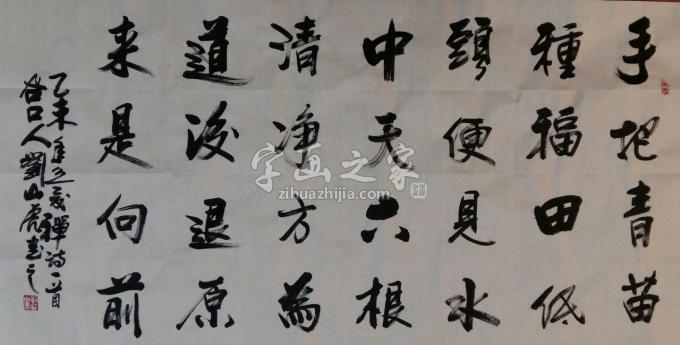 手把青苗
種福田低
頭便見水
中天六根
清净方為
道後退原
来是向前
乙未年禪詩一首
谷口人劉山虎書之
字画之家
zihuazhijia.com